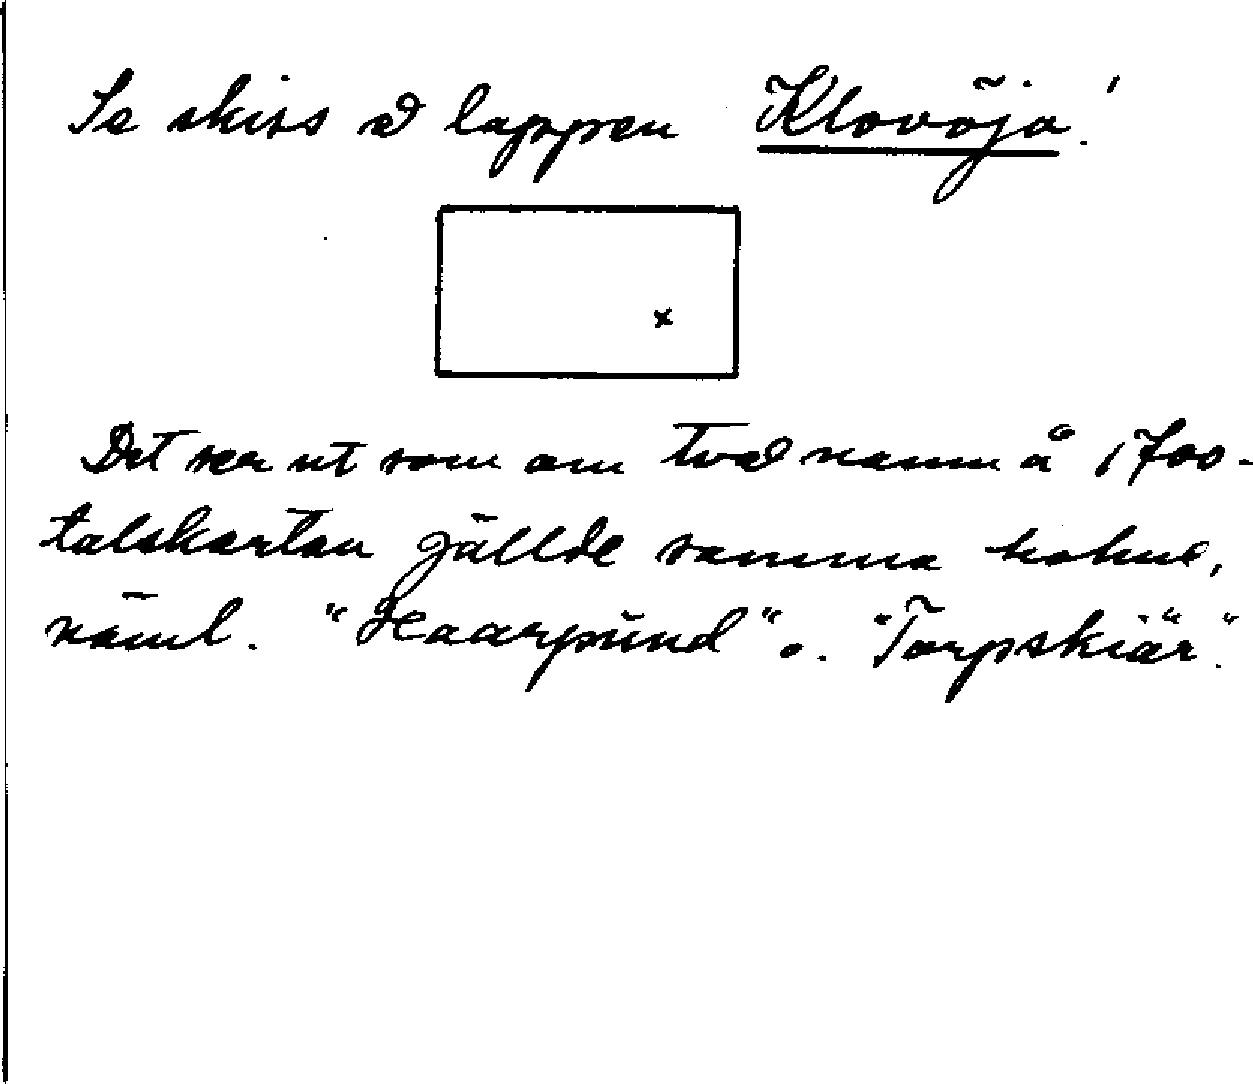 Se skiss å lappen Klovöja!
x
Det ser ut som om två namn å 1700-
talskartan gällde samma holme,
näml. "Haarpund" o. "Torpskiär".